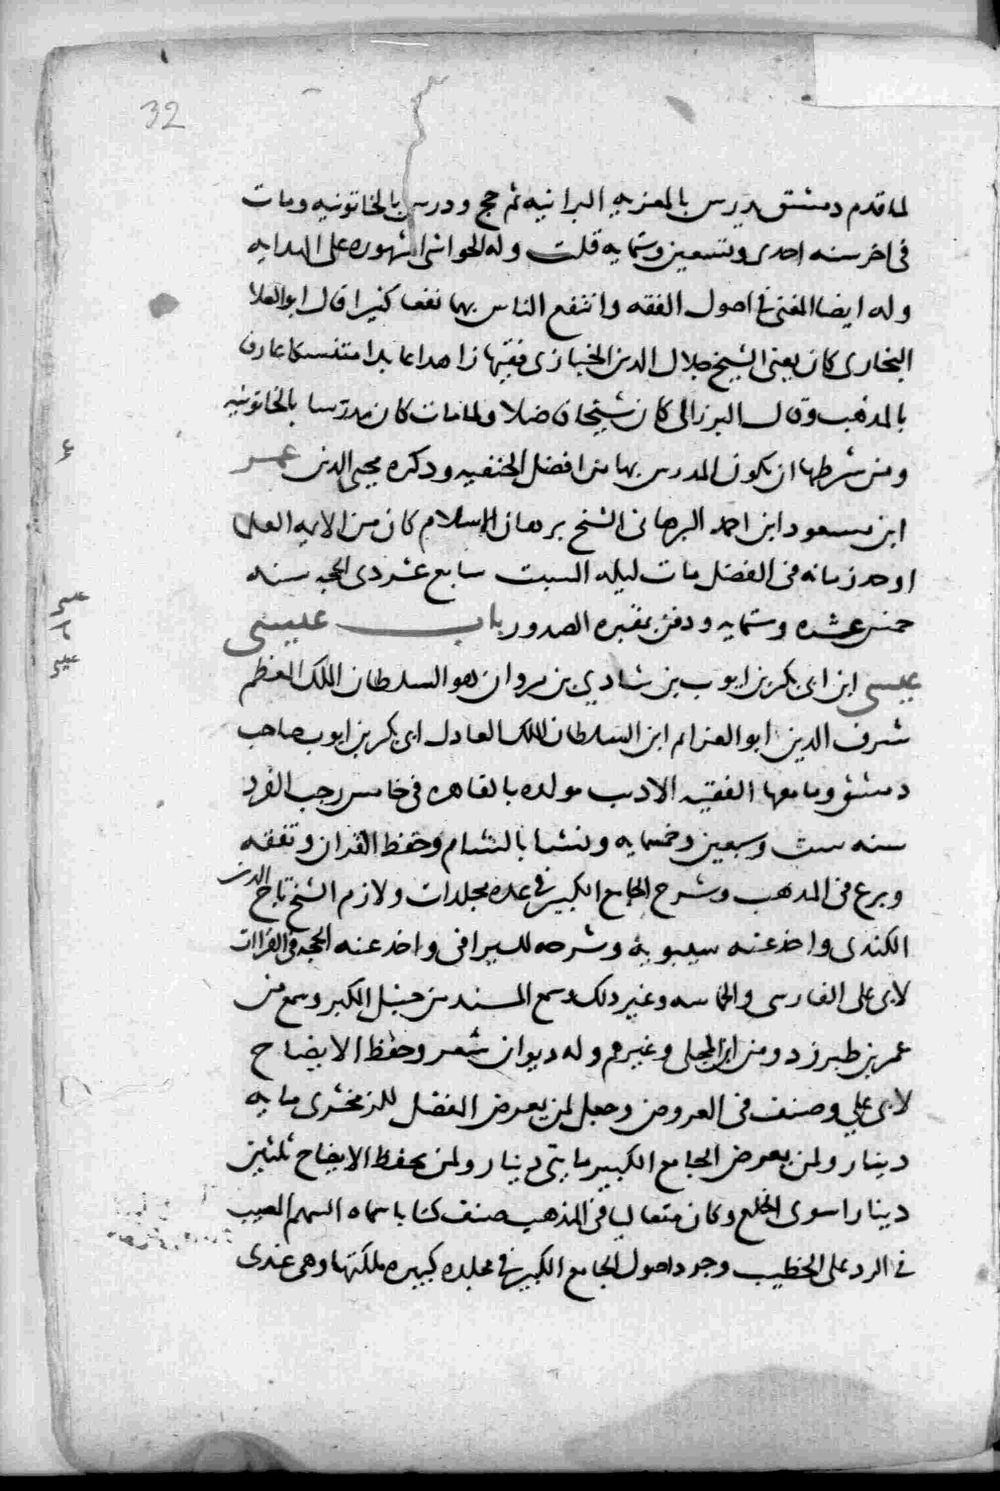 32
لما قدم دمشق درس بالمعزيه البرانيه ثم حج ودرس بالخاتونيه ومات
فى اخر سنه احدى وتسعين وستمايه قلت وله الحواشى المشهوره على الهدايه
وله ايضا المغنى فى اصول الفقه وانتفع الناس بهما نفعا كثيرا قال ابو العلا
البخارى كان يعنى الشيخ جلال الدين الخبازى فقيها زاهدا عابدا متنسكا عارفا
بالمذهب وقال البرزالى كان شيخا فاضلا ولما مات كان مدرسا بالخاتونيه
ومن شرطها ان يكون المدرس بها من افضل الحنفيه وذكره محيى الدين عمر
ابن مسعود ابن احمد البرهانى الشيخ برهان الاسلام كان من الايمه العلما
اوحد زمانه فى الفضل مات ليله السبت سابع عشر ذى الحجه سنه
خمس عشره وستمايه ودفن بمقبره الصدور باب عيسى
عيسى ابن ابى بكر بن ايوب بن شادي بن مروان هو السلطان الملك المعظم
شرف الدين ابو العزايم ابن السلطان الملك العادل ابى بكر بن ايوب صاحب
دمشق وما معها الفقيه الاديب مولده بالقاهره فى خامس رجب الفرد
سنه ست وسبعين وخمسمايه ونشا بالشام وحفظ القران وتفقه
وبرع فى المذهب وشرح الجامع الكبير فى عده مجلدات ولازم الشيخ تاج الدين
الكندى واخذ عنه سيبويه وشرحه للسيرافى واخذ عنه الحجه فى القراات
لابى على الفارسى والحماسه وغير ذلك وسمع المسند من حنبل الكبر وسمع من
عمر بن طبرزد ومن ابن المحلى وغيرهم وله ديوان شعر وحفظ الايضاح
لابى علي وصنف فى العروض وجعل لمن يعرض المفضل للزمخشرى مايه
دينار ولمن يعرض الجامع الكبير مايتى دينار ولمن يحفظ الايضاح ثلثين
دينارا سوى الخلع وكان متعاليا فى المذهب صنف كتابا سماه السهم المصيب
فى الرد على الخطيب وجرد اصول الجامع الكبير فى مجلده كبيره ملكتها وهى عندى